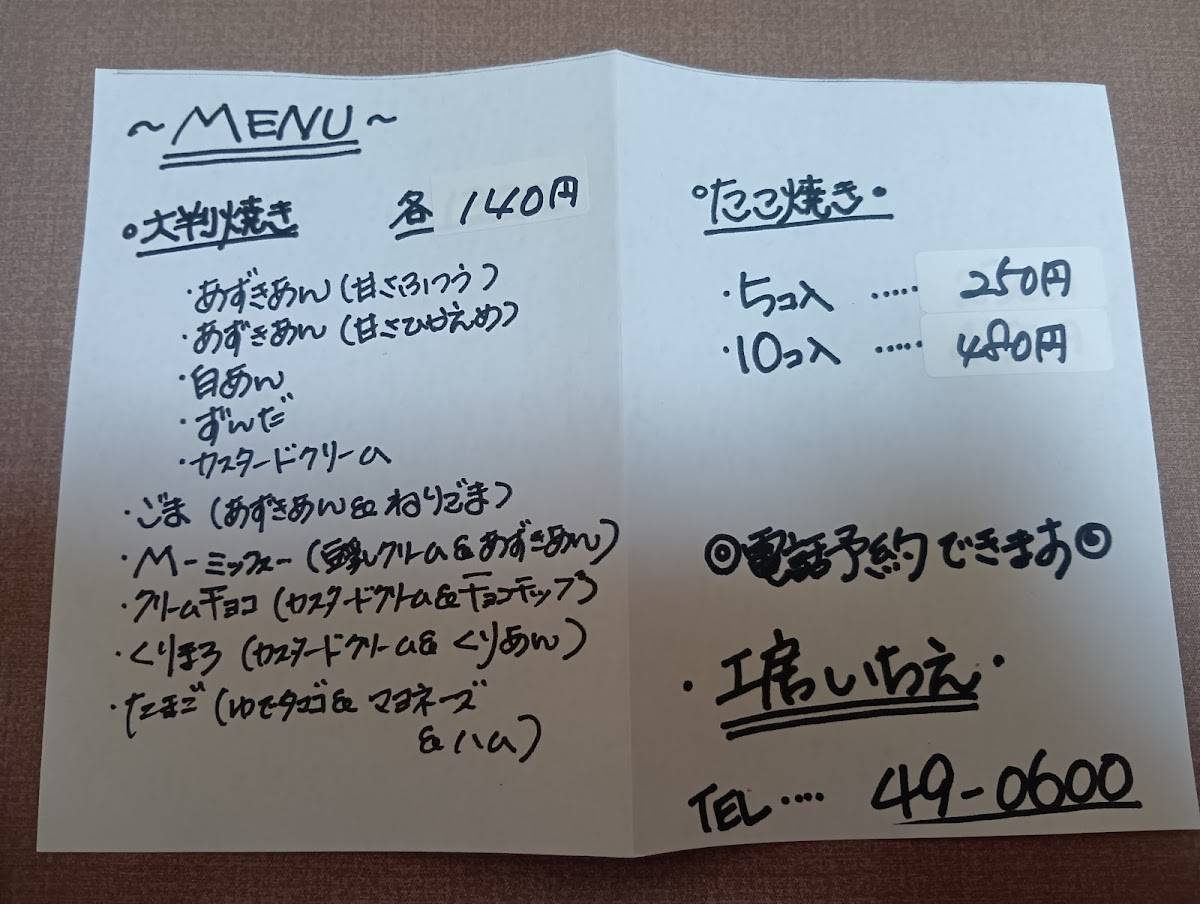 ～MENU～
・大判焼き 各 140円
・あずきあん(甘さふつう)
・あずきあん(甘さひかえめ)
・白あん
・ずんだ
・カスタードクリーム
・ごま(あずきあん&ねりごま)
・M-ミッフィー(豆乳クリーム&あずきあん)
・クリームチョコ(カスタードクリーム&チョコチップ)
・くりまろ(カスタードクリーム&くりあん)
・たまご(ゆでタマゴ&マヨネーズ
&ハム)
・たこ焼き・
・5コ入 ····· 250円
・10コ入 ····· 480円
◎電話予約できます◎
・工房いちえ・
TEL ···· 49-0600